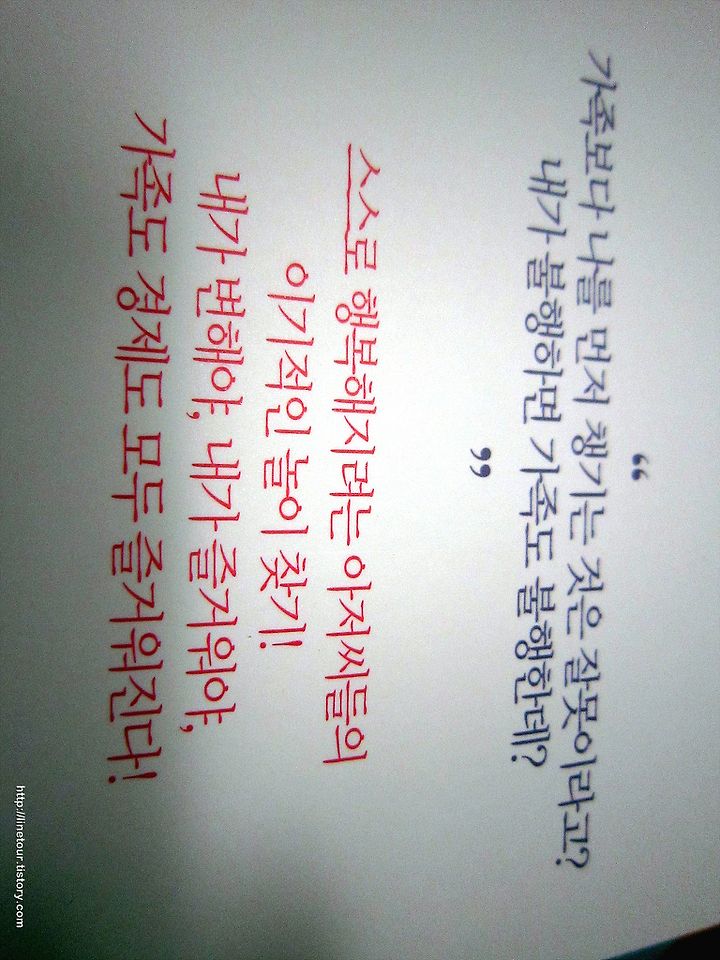 “
가족보다 나를 먼저 챙기는 것은 잘못이라고?
내가 불행하면 가족도 불행한데?
”
스스로 행복해지려는 아저씨들의
이기적인 놀이 찾기!
내가 변해야, 내가 즐거워야,
가족도 경제도 모두 즐거워진다!
http://linetour.tistory.com